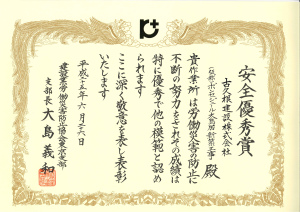 安全優秀賞
古久根建設株式会社
殿
貴作業所は労働災害の防止に
不断の努力をされその成績は
特に優秀で他の模範と認め
られます
ここに深く敬意を表し表彰
いたします
平成二十五年六月二十八日
建設業労働災害防止協会東京支部
支部長 大島義和